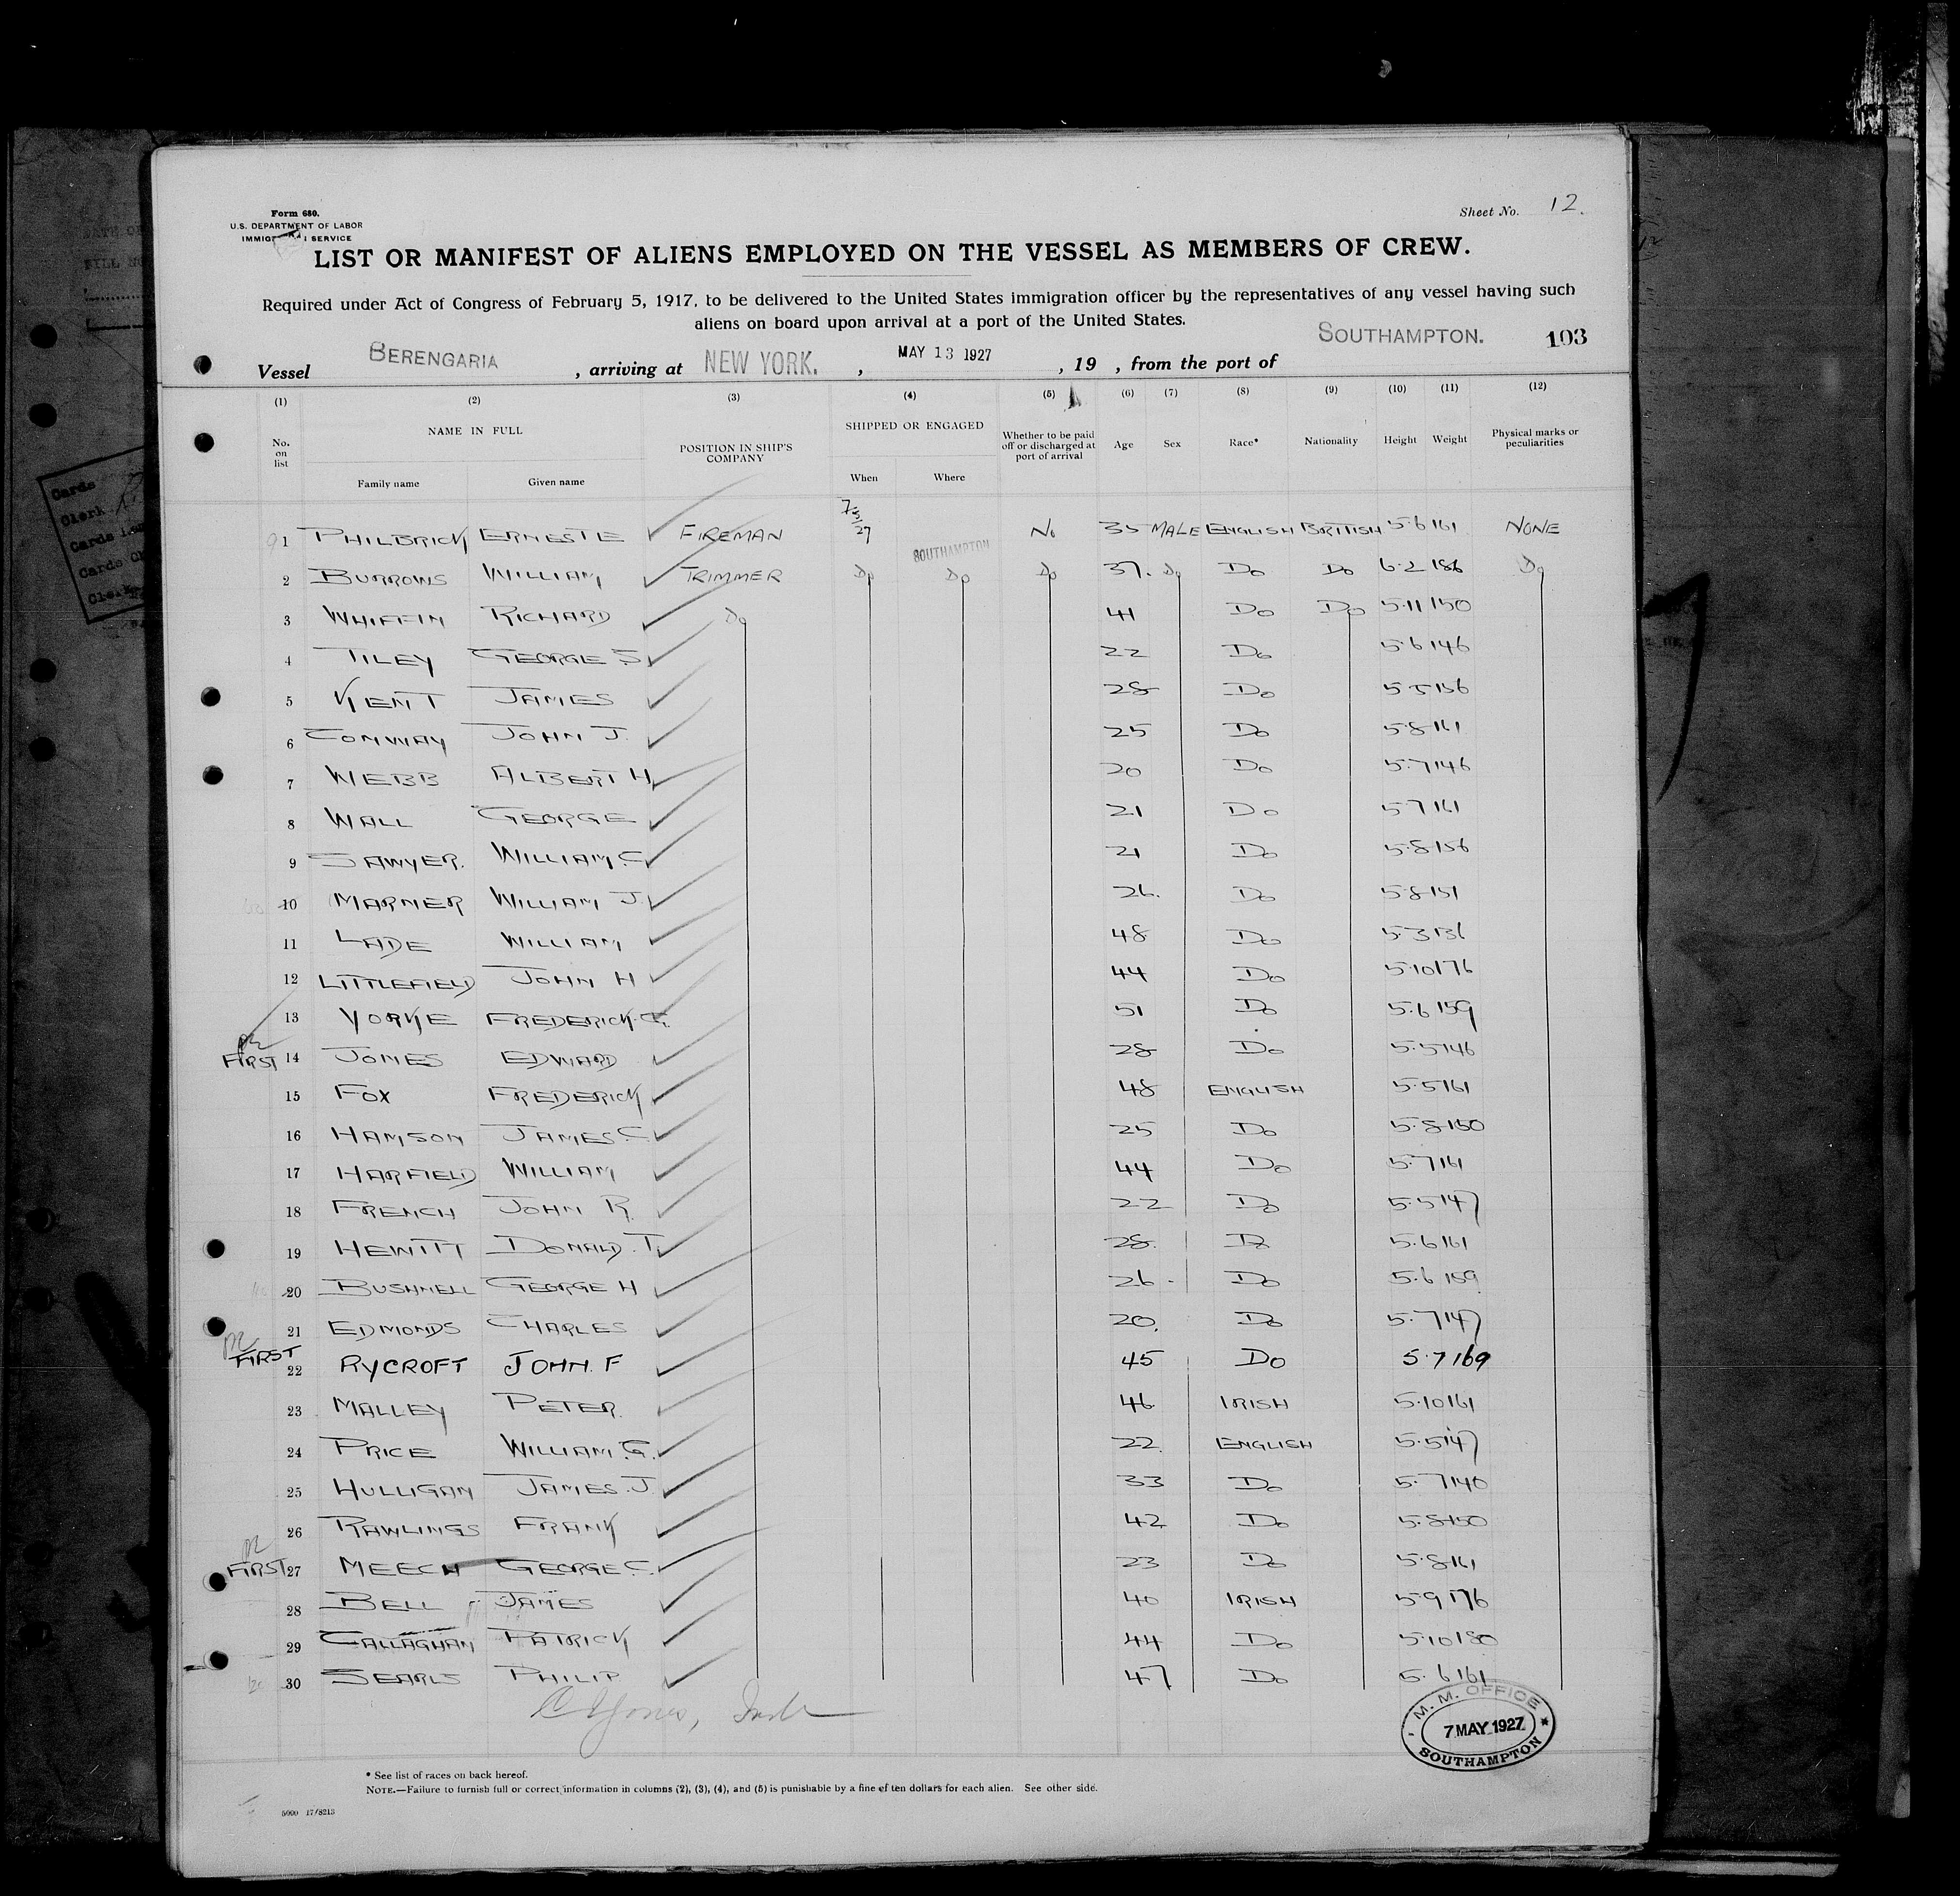 Form 680.
U.S. DEPARTMENT OF LABOR
SERVICE
Sheet No. 12.
LIST OR MANIFEST OF ALIENS EMPLOYED ON THE VESSEL AS MEMBERS OF CREW.
Required under Act of Congress of February 5, 1917, to be delivered to the United States immigration officer by the representatives of any vessel having such
aliens on board upon arrival at a port of the United States.
103
Vessel BERENGARIA , arriving at NEW YORK. , MAY 13 1927 , 19 , from the port of SOUTHAMPTON.
(1) (2) (3) (4) (5) (6) (7) (8) (9) (10) (11) (12)
No. on list NAME IN FULL POSITION IN SHIP'S COMPANY SHIPPED OR ENGAGED Whether to be paid off or discharged at port of arrival Age Sex Race* Nationality Height Weight Physical marks or peculiarities
Family name Given name When Where
1 PHILBRICK ERNEST E FIREMAN 7/5/27 SOUTHAMPTON No 35 MALE ENGLISH BRITISH 5.6 161 NONE
2 BURROWS WILLIAM TRIMMER Do Do Do 37. Do Do Do 6.2 186 Do
3 WHIFFIN RICHARD Do 41 Do Do 5.11 150
4 TILEY GEORGE S. 22 Do 5.6 146
5 KENT JAMES 28 Do 5.5 156
6 CONWAY JOHN J. 25 Do 5.8 161
7 WEBB ALBERT H 20 Do 5.7 146
8 WALL GEORGE 21 Do 5.7 161
9 SAWYER. WILLIAM. C 21 Do 5.8 156
10 MARNER WILLIAM J. 26. Do 5.8 151
11 LADE WILLIAM 48 Do 5.3 136
12 LITTLEFIELD JOHN H 44 Do 5.10 176
13 YORKE FREDERICK. G. 51 Do 5.6 159
FIRST 14 JONES EDWARD 28 Do 5.5 146
15 FOX FREDERICK 48 ENGLISH 5.5 161
16 HAMSON JAMES C 25 Do 5.8 150
17 HARFIELD WILLIAM 44 Do 5.7 161
18 FRENCH JOHN R. 22 Do 5.5 147
19 HEWITT DONALD. T. 28. Do 5.6 161
20 BUSHNELL GEORGE H 26 Do 5.6 159
21 EDMONDS CHARLES 20. Do 5.7 147
FIRST 22 RYCROFT JOHN. F 45 Do 5.7 169
23 MALLEY PETER. 46 IRISH 5.10 161
24 PRICE WILLIAM. G. 22. ENGLISH 5.5 147
25 HULLIGAN JAMES. J. 33 Do 5.7 140
26 RAWLINGS FRANK 42 Do 5.8 150
FIRST 27 MEECH GEORGE C. 23 Do 5.8 161
28 BELL JAMES 40 IRISH 5.9 176
29 CALLAGHAN PATRICK 44 Do 5.10 180
30 SEARLS PHILIP 47 Do 5.6 161
M. M. OFFICE
7 MAY 1927
SOUTHAMPTON
* See list of races on back hereof.
NOTE.—Failure to furnish full or correct information in columns (2), (3), (4), and (5) is punishable by a fine of ten dollars for each alien. See other side.
5000 17/8213